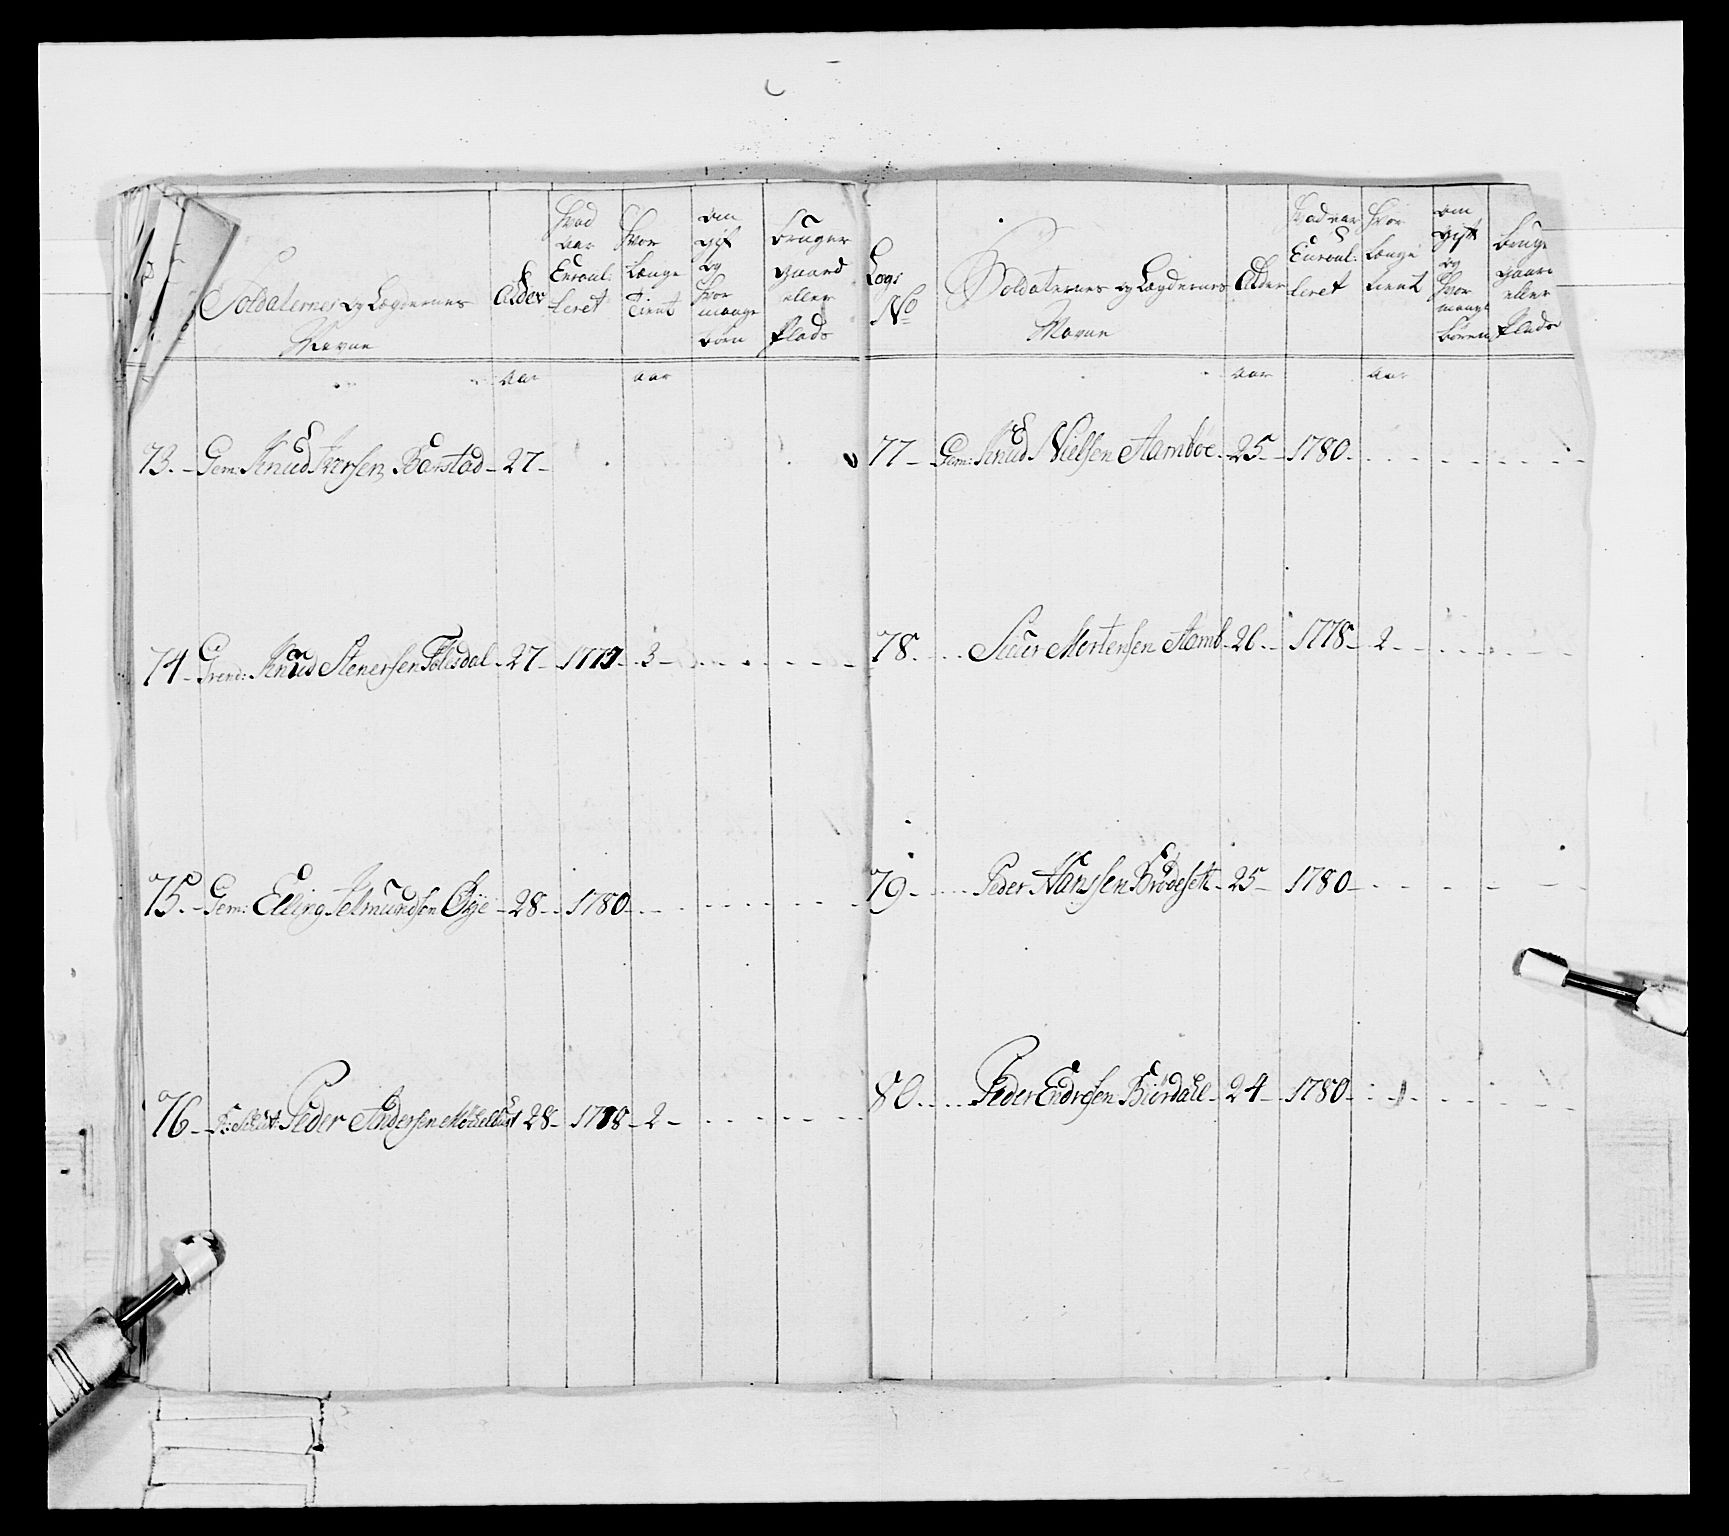 Soldaternes og Lægdernes
Navne
Alder
Hvad
aar
Enroul-
leret
Hvor
længe
Tient
om
gift
og
Hvor
mange
børn
bruger
gaard
eller
Plads
aar
aar
73. Gem: Knud Iversen Barstad 27
74 Gren: Knud Stenersen 27 1777 3
75. Gem: Elling Selmundsen Øye 28 1780
76 Peder Andersen 28 1778 2
Lægs
No
Soldaternes og Lægdernes
Navne
Alder
Hvad aar
Enroul-
leret
Hvor
længe
tient
om
gift
og
Hvor
mange
børn
bruge
gaard
eller
Plads
aar
aar
77 Gem: Knud Nielsen Aamboe 25 1780
78. Siver Mortensen Aamb 26 1778 2
79 Peder Hanssen Brödeseth 25 1780
80 Peder Endresen Biördahl 24 1780